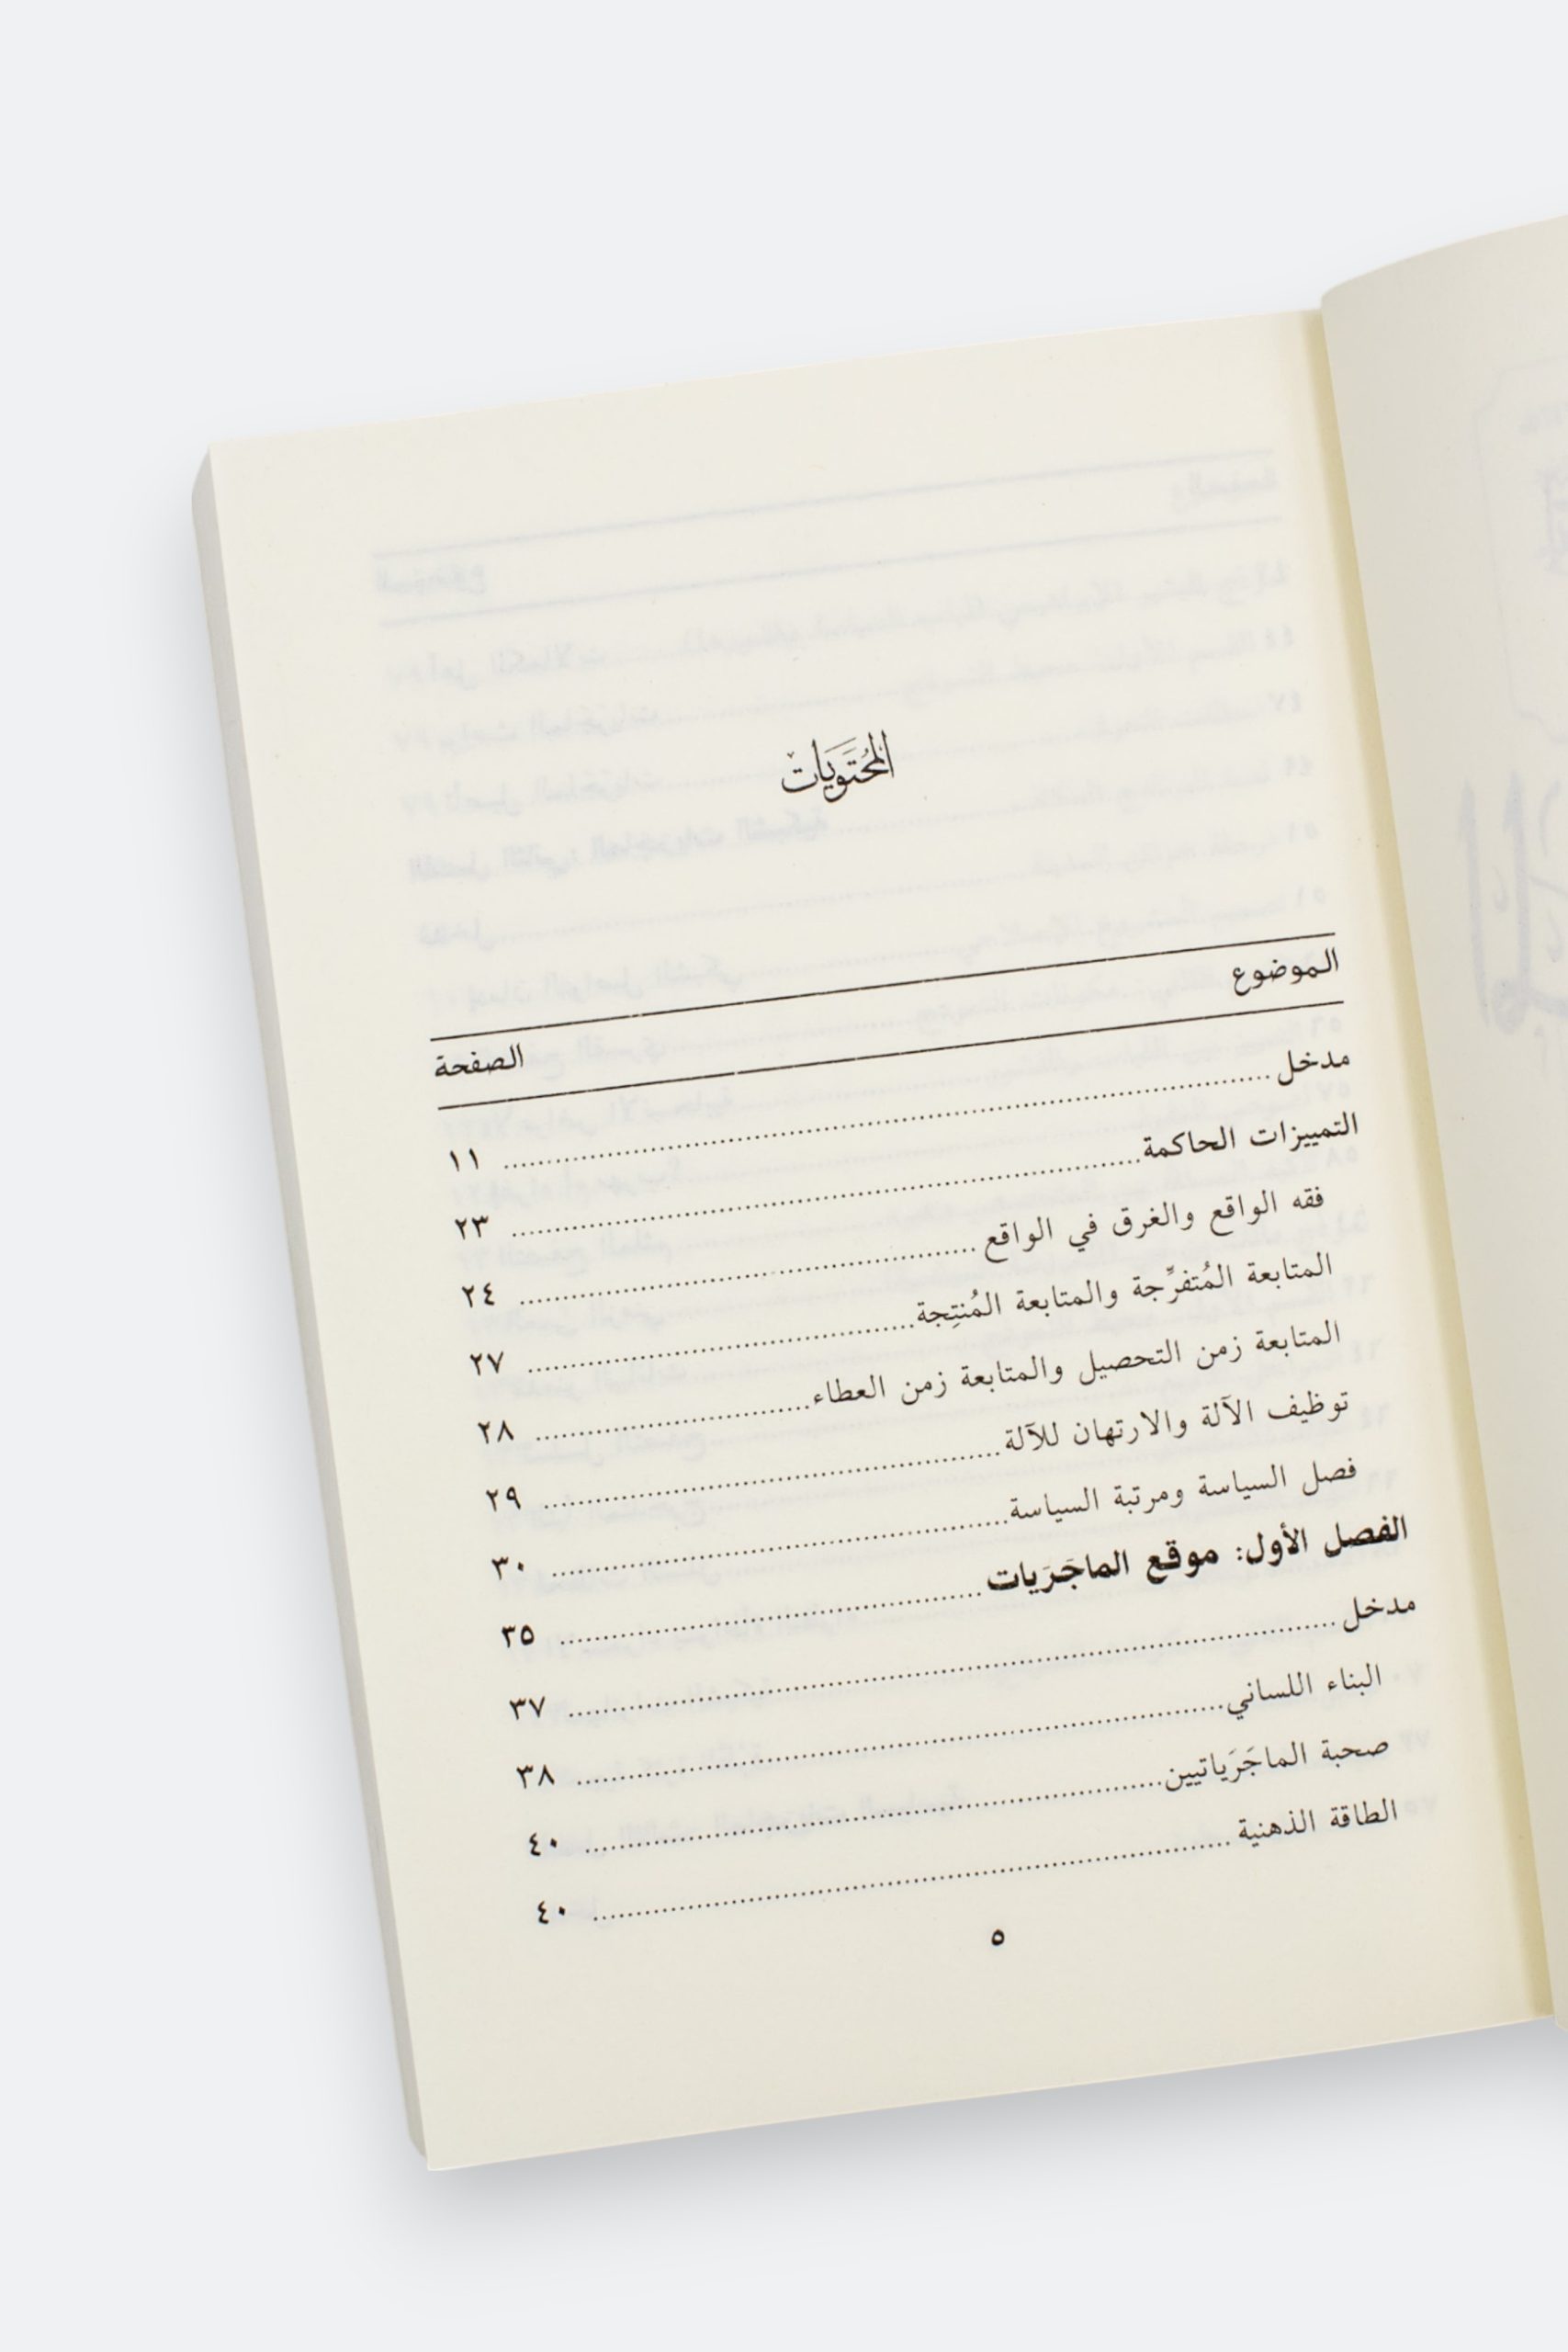 المُحتَوَيات
الموضوع الصفحة
مدخل ........ ١١
التمييزات الحاكمة ........ ٢٣
فقه الواقع والغرق في الواقع ........ ٢٤
المتابعة المُتفرِّجة والمتابعة المُنتِجة ........ ٢٧
المتابعة زمن التحصيل والمتابعة زمن العطاء ........ ٢٨
توظيف الآلة والارتهان للآلة ........ ٢٩
فصل السياسة ومرتبة السياسة ........ ٣٠
الفصل الأول: موقع الماجَرَيات ........ ٣٥
مدخل ........ ٣٧
البناء اللساني ........ ٣٨
صحبة الماجَرَياتيين ........ ٤٠
الطاقة الذهنية ........ ٤٠
٥